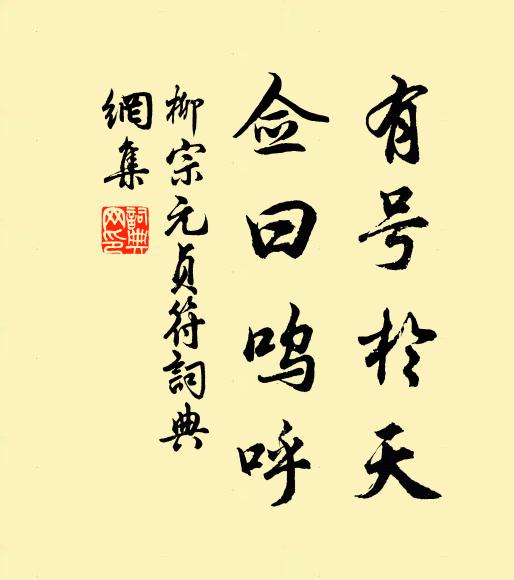 有号於天
佥曰呜呼
柳宗元贞符词典
網集
詞典网印